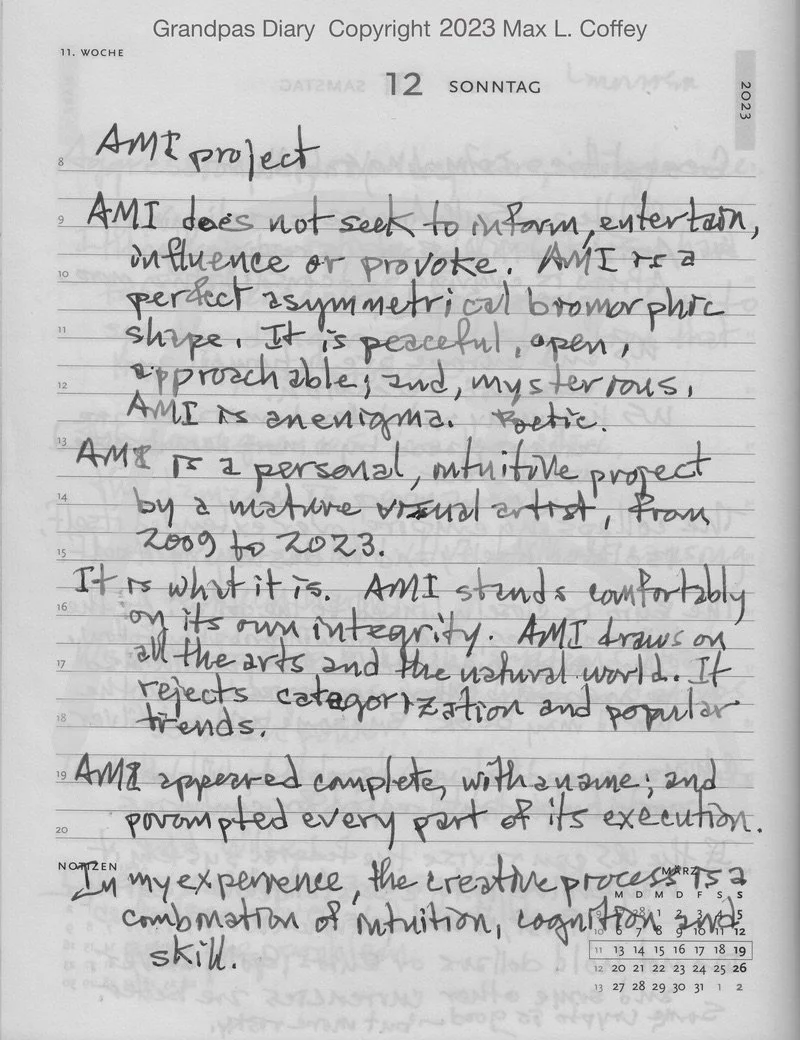 Grandpas Diary Copyright 2023 Max L. Coffey
11. WOCHE
12 SONNTAG
2023
AMI project
8
AMI does not seek to inform, entertain,
9
influence or provoke. AMI is a
10
perfect asymmetrical biomorphic
shape. It is peaceful, open,
11
approachable; and, mysterious.
12
AMI is an enigma. Poetic.
13
AMI is a personal, intuitive project
by a mature visual artist, from
14
2009 to 2023.
15
It is what it is. AMI stands comfortably
16
on its own integrity. AMI draws on
all the arts and the natural world. It
17
rejects categorization and popular
18
trends.
19
AMI appeared complete, with a name; and
povompted every part of its execution.
20
NOTIZEN
In my experience, the creative process is a
combination of intuition, cognition and
skill.
MÄRZ
M D M D F S S
9 27 28 1 2 3 4 5
10 6 7 8 9 10 11 12
11 13 14 15 16 17 18 19
12 20 21 22 23 24 25 26
13 27 28 29 30 31 1 2